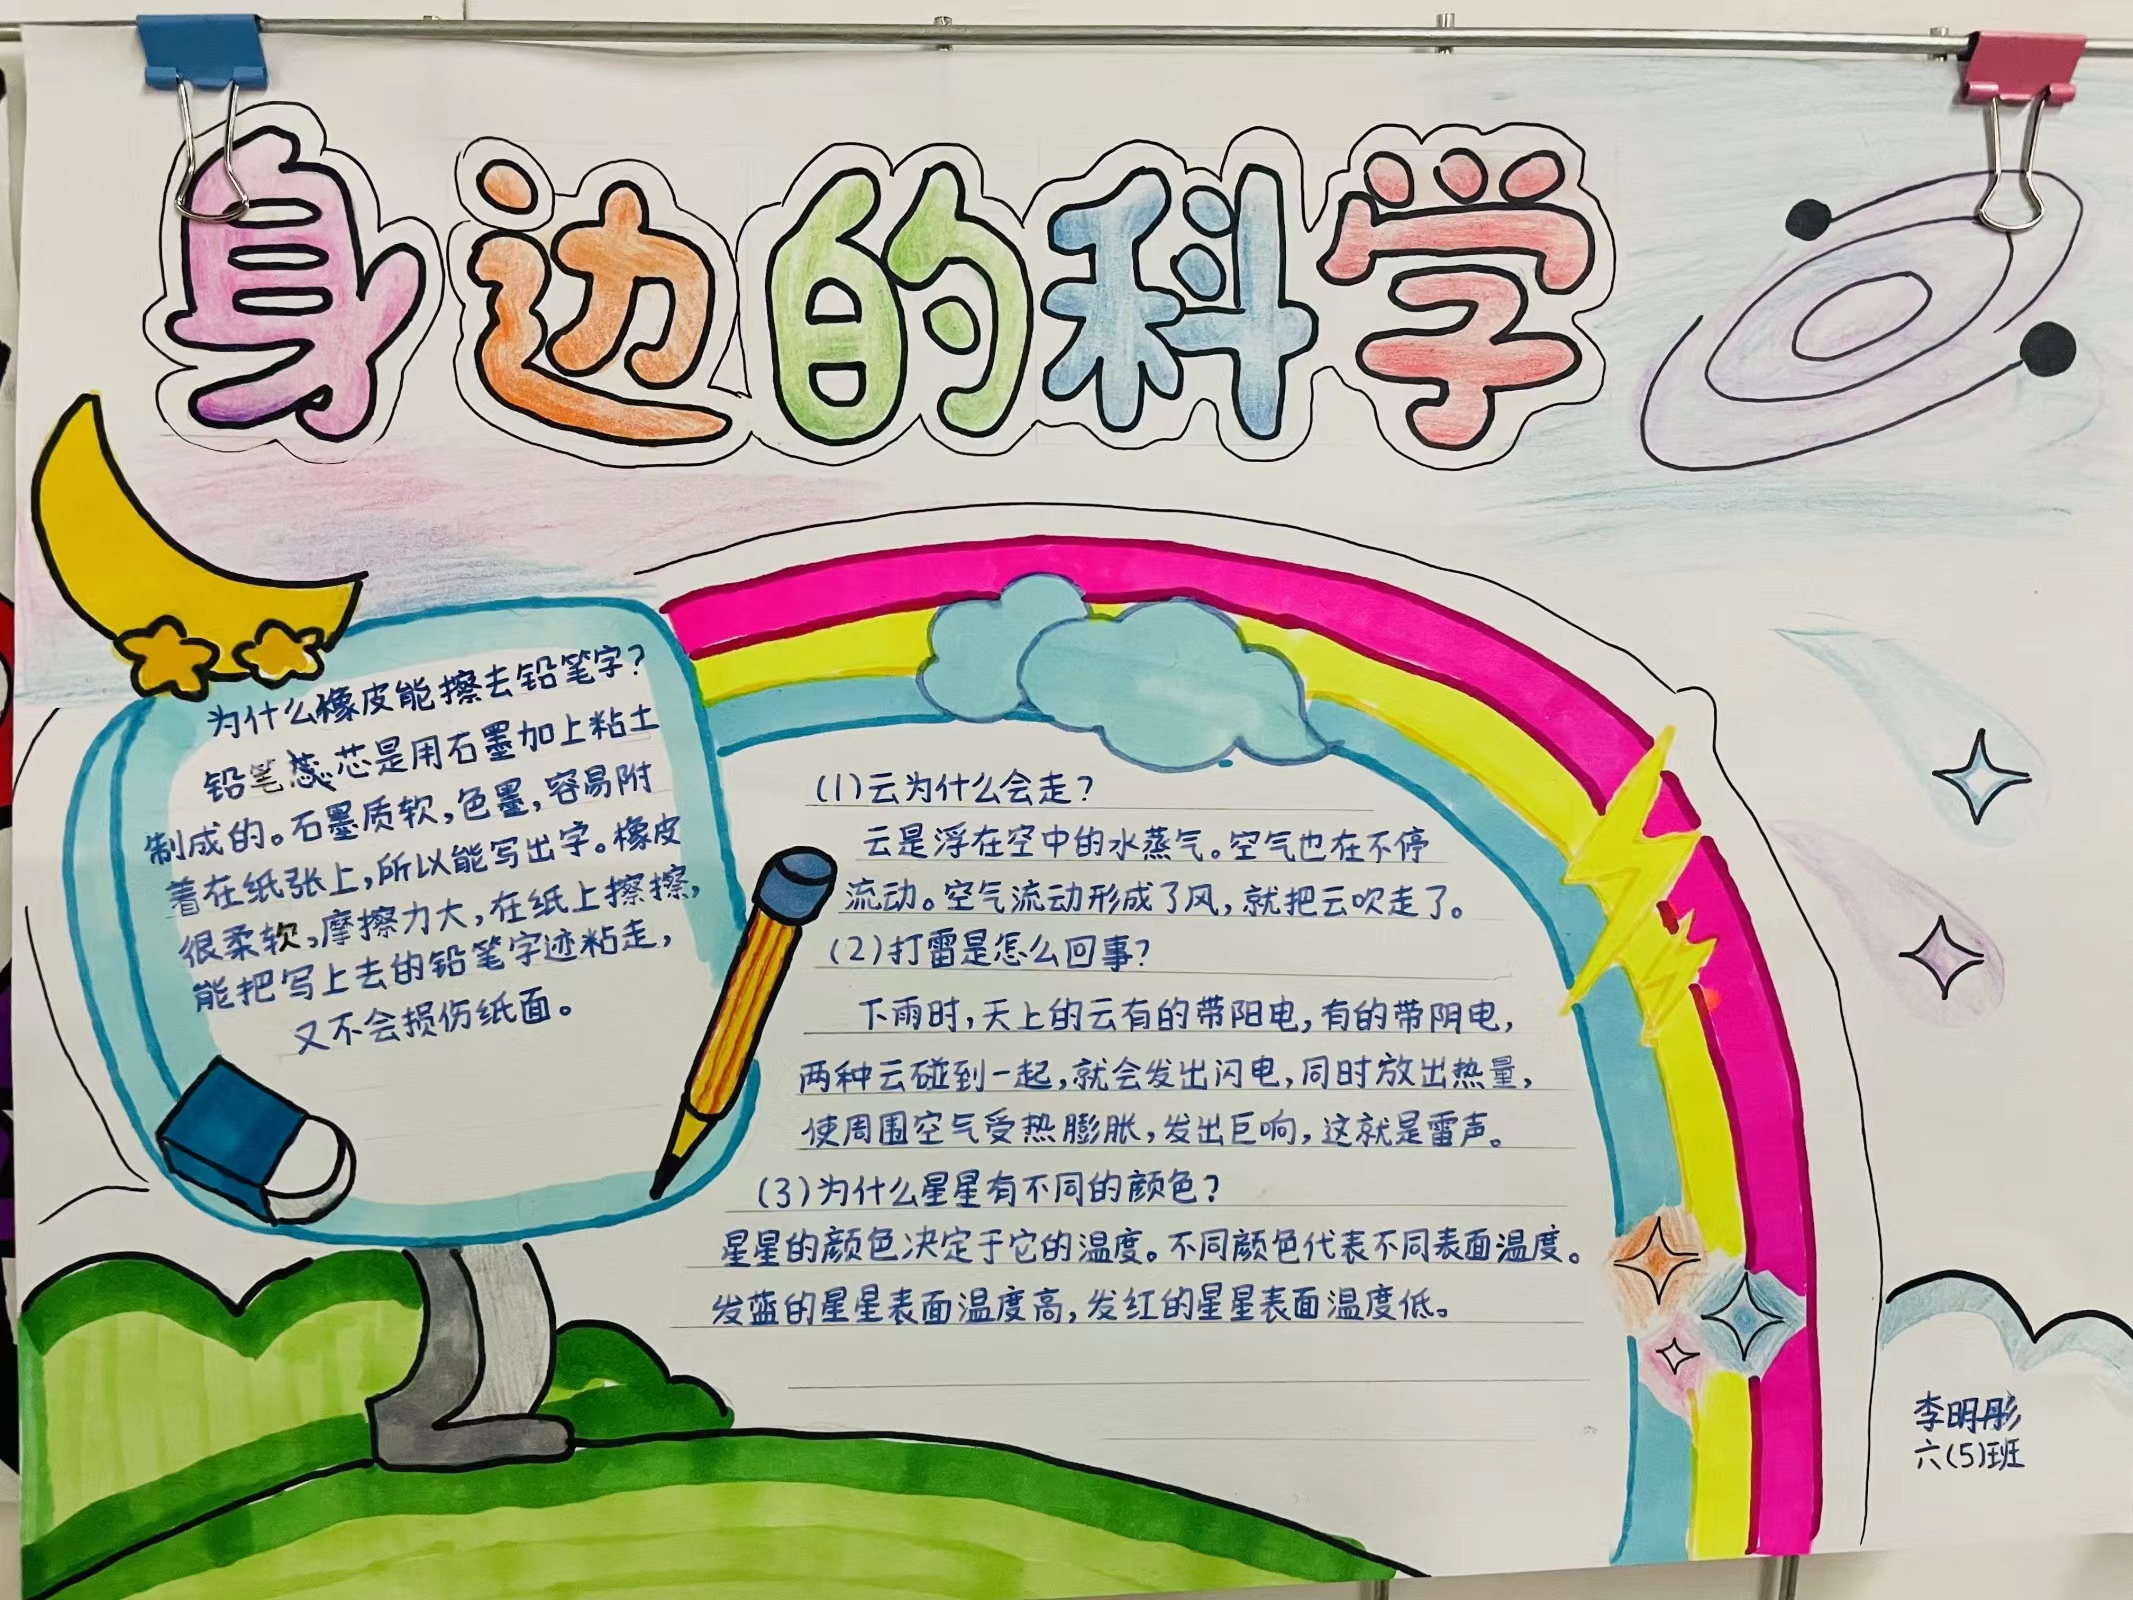 身边的科学
为什么橡皮能擦去铅笔字？
铅笔芯是用石墨加上粘土
制成的。石墨质软，色墨，容易附
着在纸张上，所以能写出字。橡皮
很柔软，摩擦力大，在纸上擦擦，
能把写上去的铅笔字迹粘走，
又不会损伤纸面。
（1）云为什么会走？
云是浮在空中的水蒸气。空气也在不停
流动。空气流动形成了风，就把云吹走了。
（2）打雷是怎么回事？
下雨时，天上的云有的带阳电，有的带阴电，
两种云碰到一起，就会发出闪电，同时放出热量，
使周围空气受热膨胀，发出巨响，这就是雷声。
（3）为什么星星有不同的颜色？
星星的颜色决定于它的温度。不同颜色代表不同表面温度。
发蓝的星星表面温度高，发红的星星表面温度低。
李明彤
六（5）班